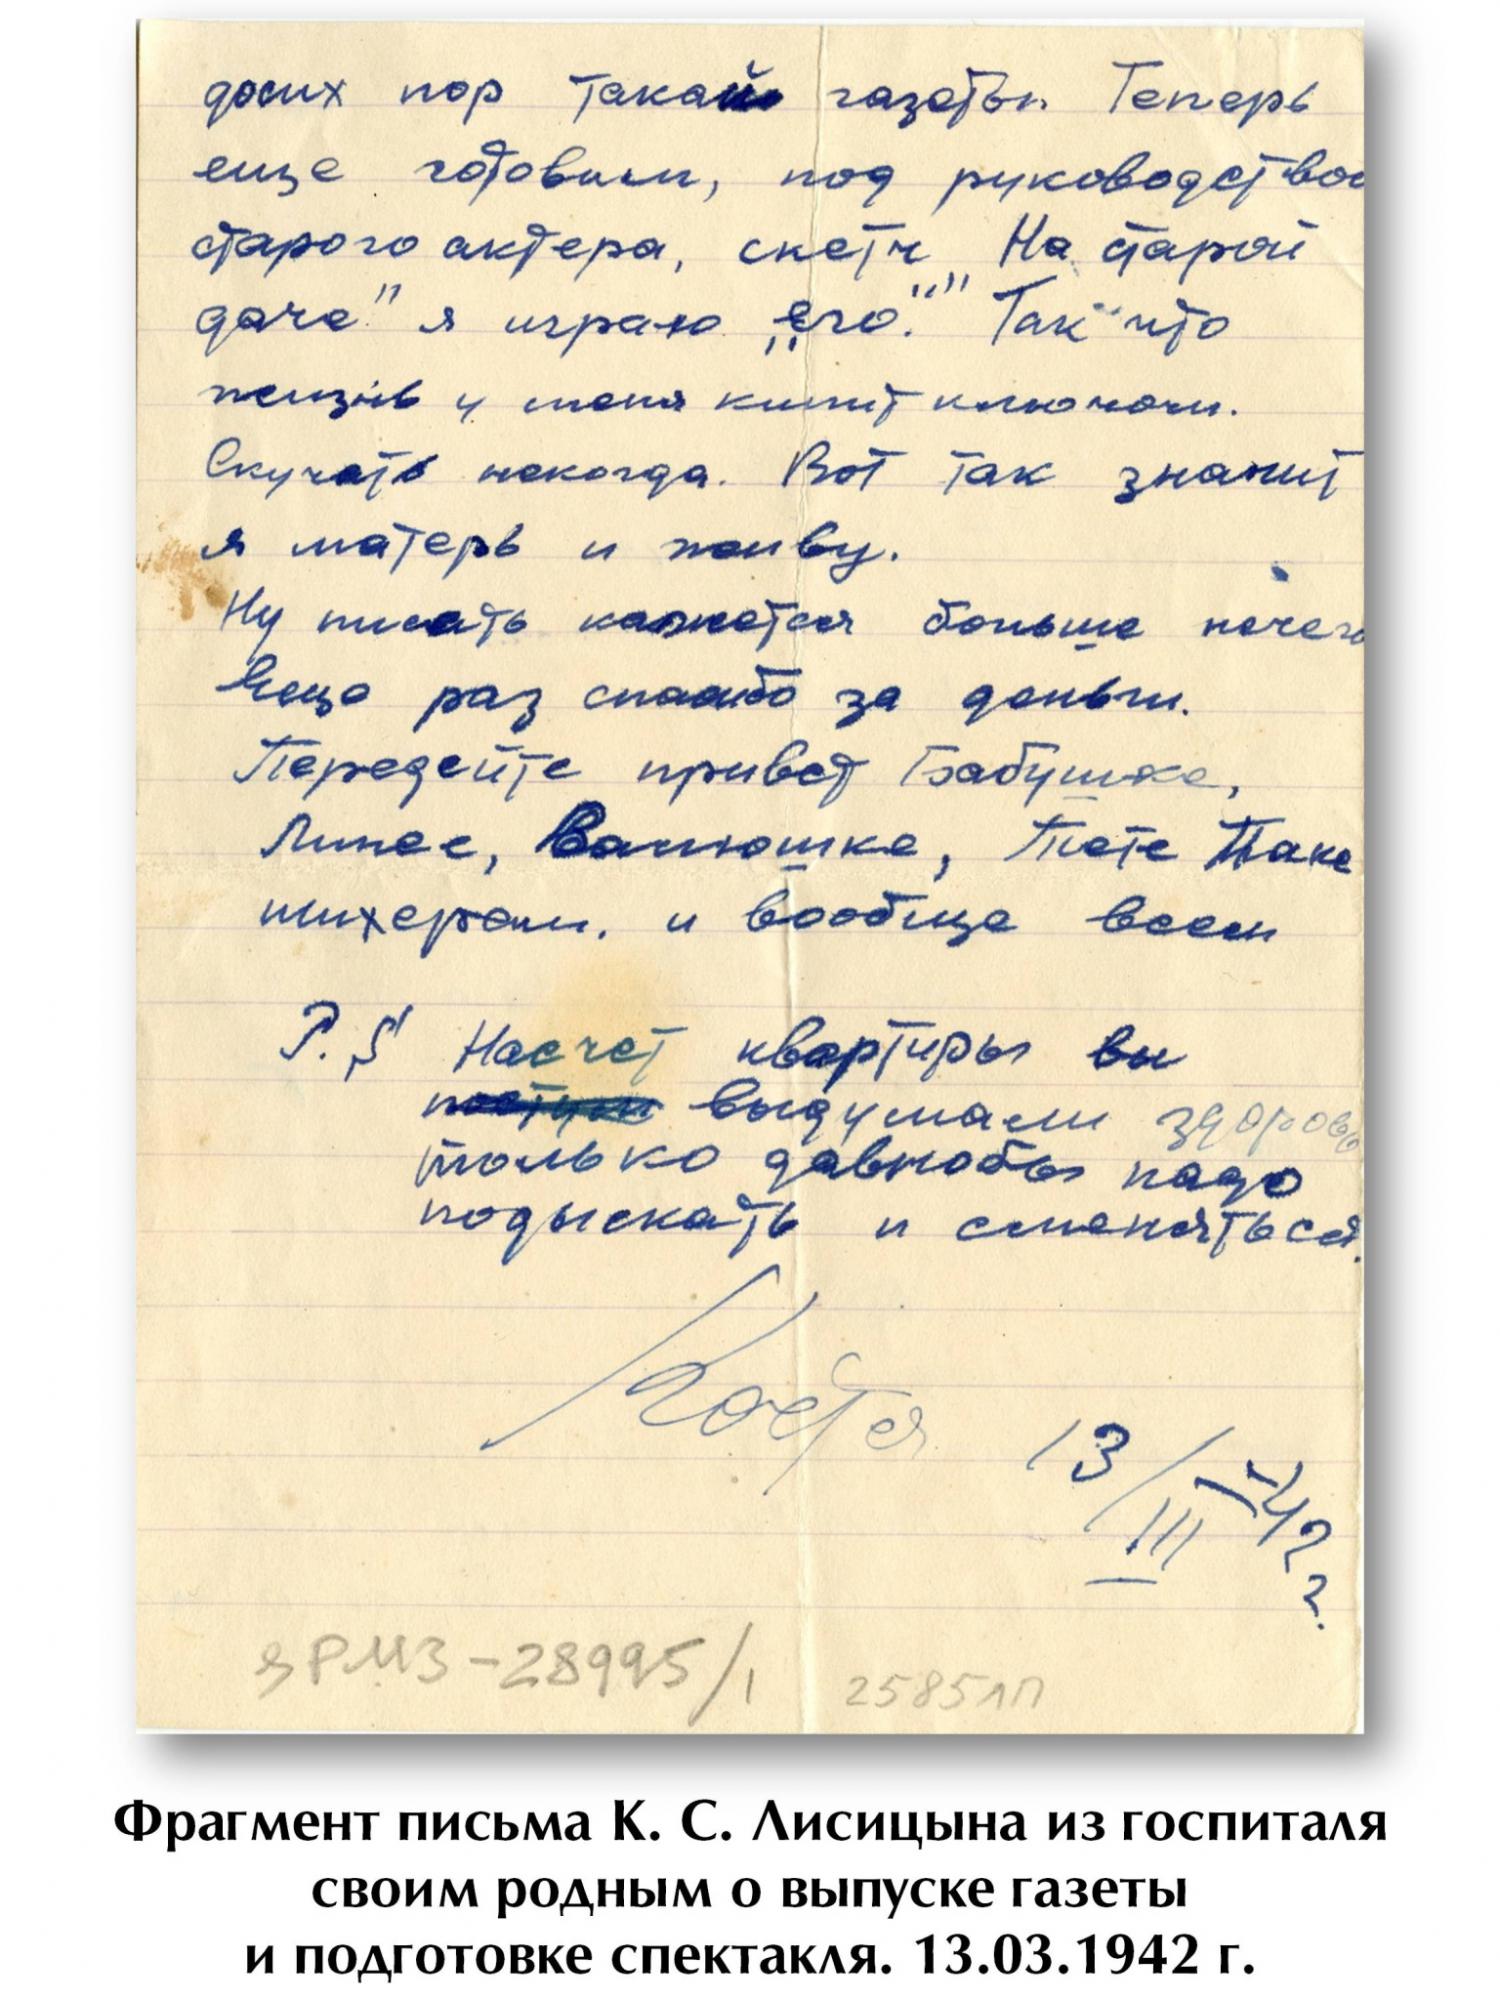 досих пор такай газеты. Теперь
еще готовим, под руководство
старого актера, скетч „На старой
даче" я играю „его". Так что
жизнь у меня кипит ключом.
Скучать некогда. Вот так значит
я матерь и живу.
Ну писать кажется больше нечего
Еще раз спасибо за деньги.
Передейте привет Бабушке,
Ванюшке, Тете
и вообще всем
P.S Насчет квартиры вы
выдумали здорово
только давнобы надо
подыскать и сменяться.
Костя
13/III-42 г.
ЯРМЗ-28995/1 2585ЛП
Фрагмент письма К. С. Лисицына из госпиталя
своим родным о выпуске газеты
и подготовке спектакля. 13.03.1942 г.